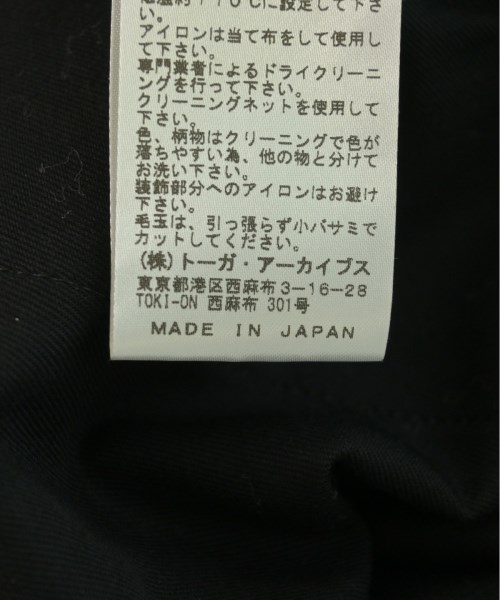 110℃に設定して下さ
い。
アイロンは当て布をして使用し
て下さい。
専門業者によるドライクリーニ
ングを行って下さい。
クリーニングネットを使用して
下さい。
色、柄物はクリーニングで色が
落ちやすい為、他の物と分けて
お洗い下さい。
装飾部分へのアイロンはお避け
下さい。
毛玉は、引っ張らず小バサミで
カットしてください。
(株)トーガ・アーカイブス
東京都港区西麻布3-16-28
TOKI-ON 西麻布 301号
MADE IN JAPAN